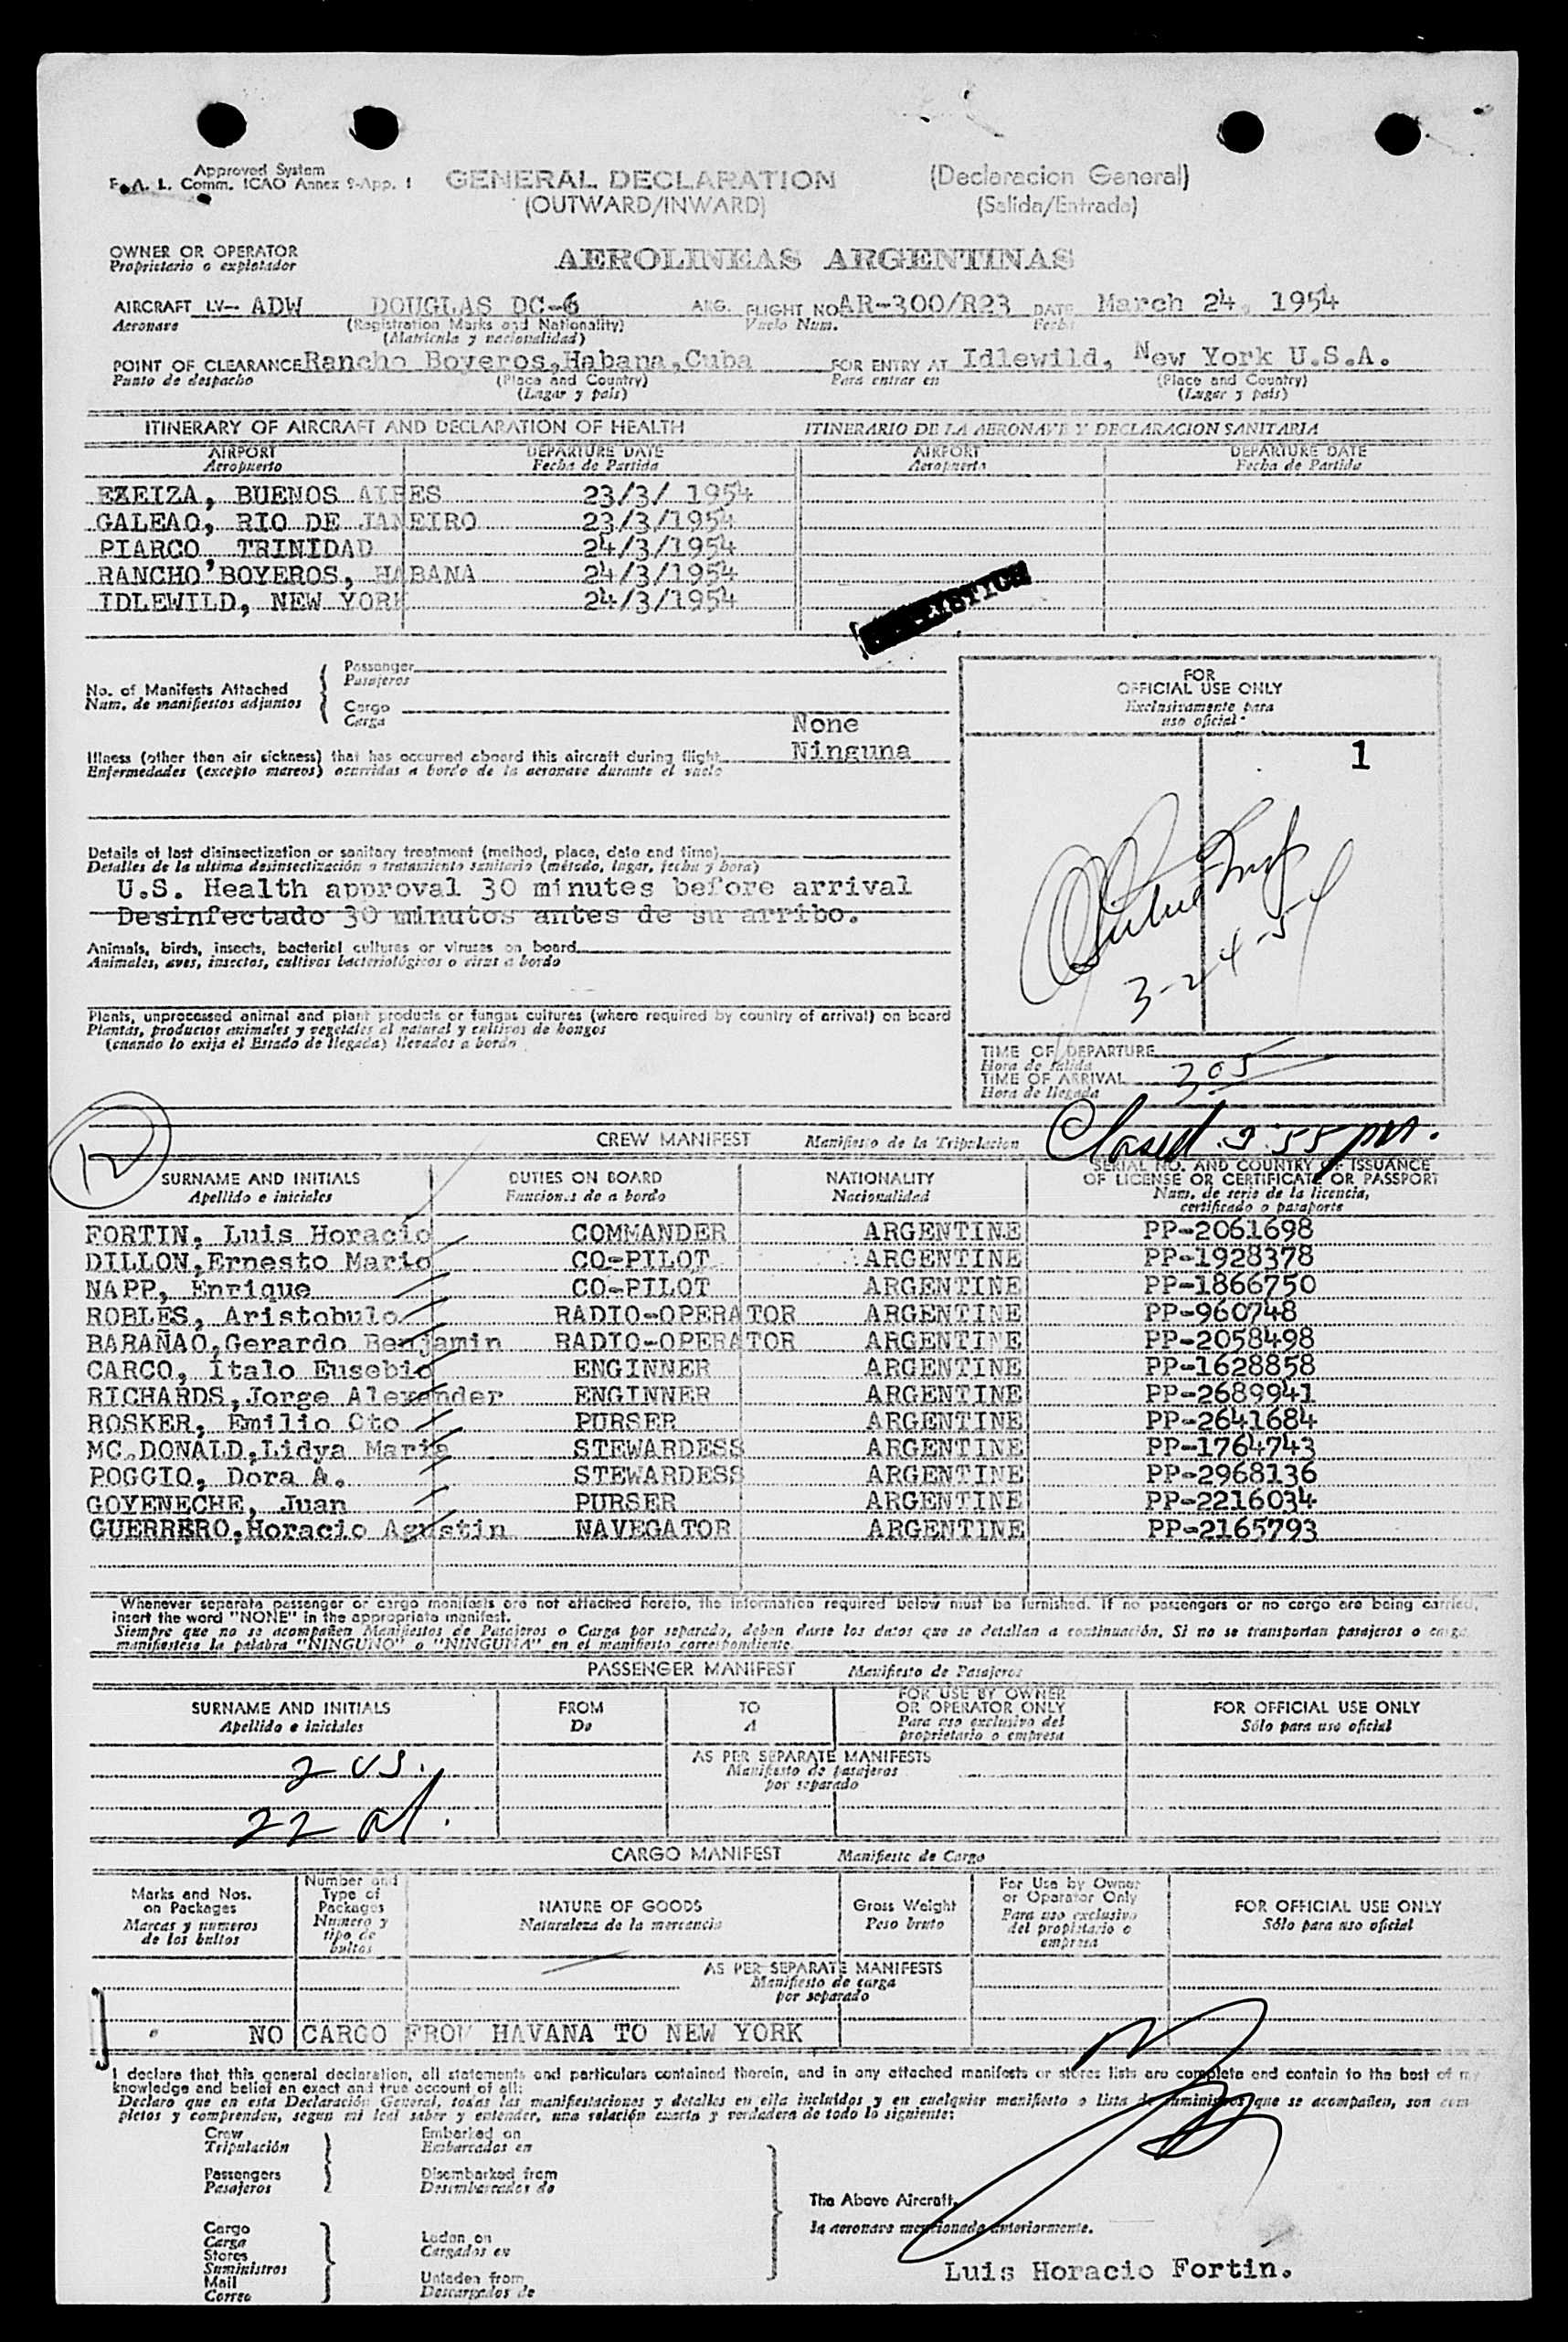 Approved System
F. A. L. Comm. ICAO Annex 9-App. 1
GENERAL DECLARATION (Declaracion General)
(OUTWARD/INWARD) (Salida/Entrada)
OWNER OR OPERATOR
Propietario o explotador
AEROLINEAS ARGENTINAS
AIRCRAFT LV- ADW DOUGLAS DC-6 ARG. FLIGHT NO AR-300/R23 DATE March 24, 1954
Aeronave (Registration Marks and Nationality) Vuelo Num. Fecha
(Matricula y nacionalidad)
POINT OF CLEARANCE Rancho Boyeros,Habana,Cuba FOR ENTRY AT Idlewild, New York U.S.A.
Punto de despacho (Place and Country) Para entrar en (Place and Country)
(Lugar y país) (Lugar y país)
ITINERARY OF AIRCRAFT AND DECLARATION OF HEALTH ITINERARIO DE LA AERONAVE Y DECLARACION SANITARIA
AIRPORT DEPARTURE DATE AIRPORT DEPARTURE DATE
Aeropuerto Fecha de Partida Aeropuerto Fecha de Partida
EZEIZA, BUENOS AIRES 23/3/ 1954
GALEAO, RIO DE JANEIRO 23/3/1954
PIARCO, TRINIDAD 24/3/1954
RANCHO BOYEROS, HABANA 24/3/1954
IDLEWILD, NEW YORK 24/3/1954
No. of Manifests Attached
Num. de manifiestos adjuntos
Passenger
Pasajeros
Cargo
Carga
FOR
OFFICIAL USE ONLY
Exclusivamente para
uso oficial
1
None
Illness (other than air sickness) that has occurred aboard this aircraft during flight Ninguna
Enfermedades (excepto mareos) ocurridas a bordo de la aeronave durante el vuelo
Details of last disinsectization or sanitary treatment (method, place, date and time)
Detalles de la ultima desinsectización o tratamiento sanitario (método, lugar, fecha y hora)
U.S. Health approval 30 minutes before arrival
Desinfectado 30 minutos antes de su arribo.
3-24-54
Animals, birds, insects, bacterial cultures or viruses on board
Animales, aves, insectos, cultivos bacteriológicos o virus a bordo
Plants, unprocessed animal and plant products or fungus cultures (where required by country of arrival) on board
Plantas, productos animales y vegetales al natural y cultivos de hongos
(cuando lo exija el Estado de llegada) llevados a bordo
TIME OF DEPARTURE
Hora de salida
TIME OF ARRIVAL 305
Hora de llegada
12
Closed 3:55 pm.
CREW MANIFEST Manifiesto de la Tripulacion
SURNAME AND INITIALS DUTIES ON BOARD NATIONALITY SERIAL NO. AND COUNTRY OF ISSUANCE
OF LICENSE OR CERTIFICATE OR PASSPORT
Apellido e iniciales Funciones de a bordo Nacionalidad Num. de serie de la licencia,
certificado o pasaporte
FORTIN, Luis Horacio COMMANDER ARGENTINE PP-2061698
DILLON,Ernesto Mario CO-PILOT ARGENTINE PP-1928378
NAPP, Enrique CO-PILOT ARGENTINE PP-1866750
ROBLES, Aristobulo RADIO-OPERATOR ARGENTINE PP-960748
BARAÑAO,Gerardo Benjamin RADIO-OPERATOR ARGENTINE PP-2058498
CARCO, Italo Eusebio ENGINNER ARGENTINE PP-1628858
RICHARDS,Jorge Alexander ENGINNER ARGENTINE PP-2689941
ROSKER, Emilio Oto PURSER ARGENTINE PP-2641684
MC.DONALD,Lidya Maria STEWARDESS ARGENTINE PP-1764743
POGGIO, Dora A. STEWARDESS ARGENTINE PP-2968136
GOYENECHE, Juan PURSER ARGENTINE PP-2216034
GUERRERO,Horacio Agustin NAVEGATOR ARGENTINE PP-2165793
Whenever separate passenger or cargo manifests are not attached hereto, the information required below must be furnished. If no passengers or no cargo are being carried,
insert the word "NONE" in the appropriate manifest.
Siempre que no se acompañen Manifiestos de Pasajeros o Carga por separado, deben darse los datos que se detallan a continuación. Si no se transportan pasajeros o carga
manifiestese la palabra "NINGUNO" o "NINGUNA" en el manifiesto correspondiente.
PASSENGER MANIFEST Manifiesto de Pasajeros
SURNAME AND INITIALS FROM TO FOR USE BY OWNER
OR OPERATOR ONLY FOR OFFICIAL USE ONLY
Apellido e iniciales De A Para uso exclusivo del
propietario o empresa Sólo para uso oficial
2 US.
AS PER SEPARATE MANIFESTS
Manifiesto de pasajeros
por separado
22 al.
CARGO MANIFEST Manifiesto de Cargo
Marks and Nos.
on Packages
Marcas y numeros
de los bultos
Number and
Type of
Packages
Numero y
tipo de
bultos
NATURE OF GOODS
Naturaleza de la mercancia
Gross Weight
Peso bruto
For Use by Owner
or Operator Only
Para uso exclusivo
del propietario o
empresa
FOR OFFICIAL USE ONLY
Sólo para uso oficial
AS PER SEPARATE MANIFESTS
Manifiesto de carga
por separado
NO CARGO FROM HAVANA TO NEW YORK
I declare that this general declaration, all statements and particulars contained therein, and in any attached manifests or stores lists are complete and contain to the best of my
knowledge and belief an exact and true account of all:
Declaro que en esta Declaración General, todas las manifestaciones y detalles en ella incluidos y en cualquier manifiesto o lista de suministros que se acompañen, son com
pletos y comprenden, segun mi leal saber y entender, una relación exacta y verdadera de todo lo siguiente:
Crew
Tripulación
Embarked on
Embarcados en
Passengers
Pasajeros
Disembarked from
Desembarcados de
The Above Aircraft,
la aeronave mencionada anteriormente.
Cargo
Carga
Stores
Suministros
Mail
Correo
Laden on
Cargados en
Unladen from
Descargados de
Luis Horacio Fortin.